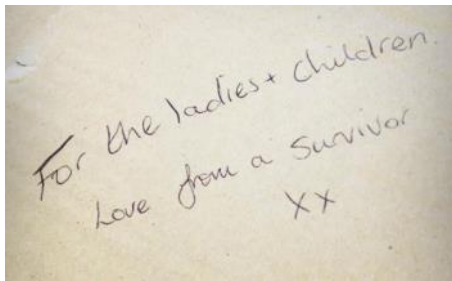 For the ladies + children.
Love from a Survivor
XX